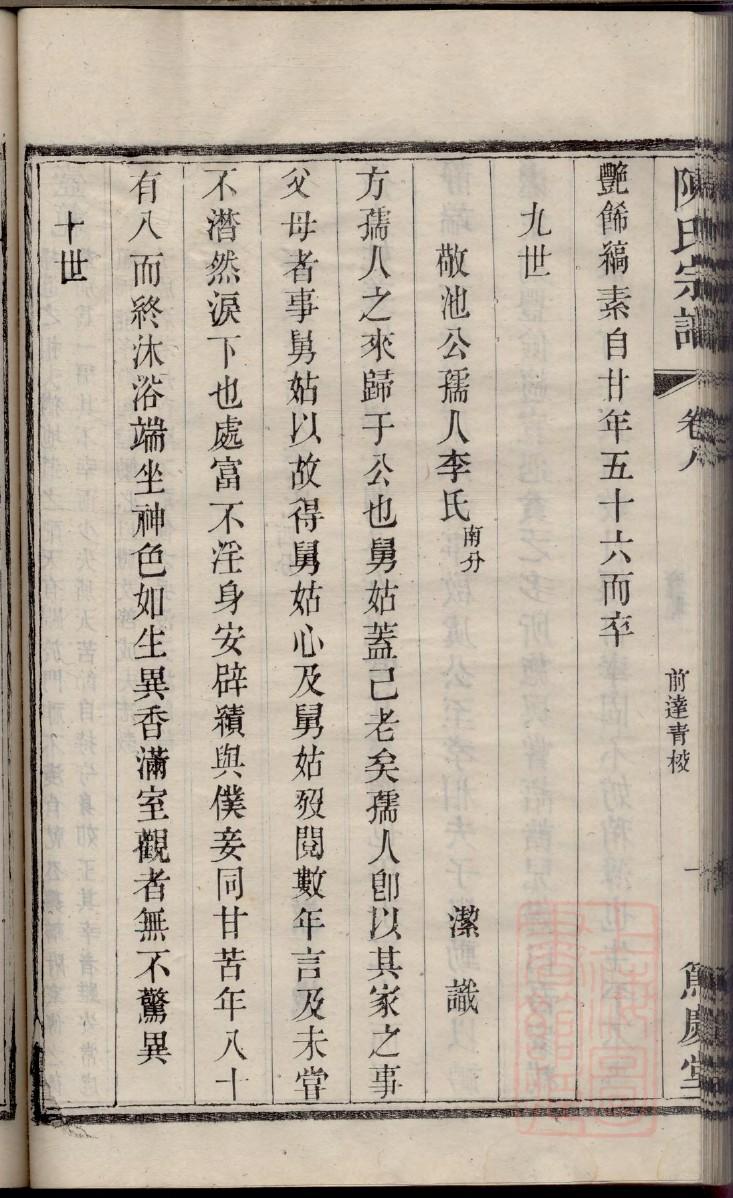 陳氏宗譜 卷八 前達青棱 一 篤慶堂
艷餙縞素自廿年五十六而卒
九世
敬池公孺人李氏 南分 潔識
方孺人之來歸于公也舅姑蓋已老矣孺人卽以其家之事
父母者事舅姑以故得舅姑心及舅姑歿閱數年言及未嘗
不潸然淚下也處富不淫身安辟績與僕妾同甘苦年八十
有八而終沐浴端坐神色如生異香滿室觀者無不驚異
十世